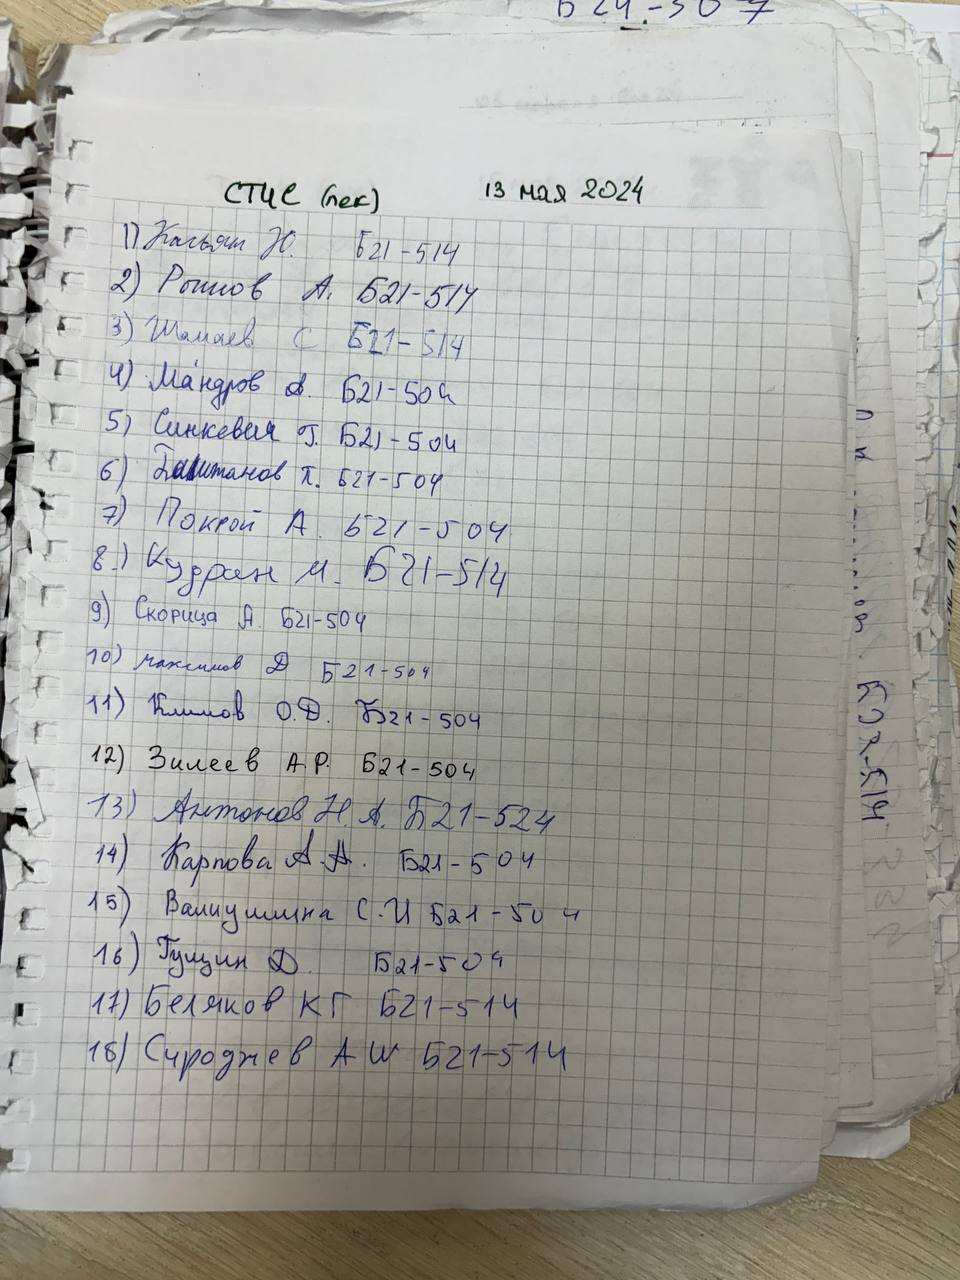 Б24-307
СТИС (лек) 13 мая 2024
1) Касьян Ю. Б21-514
2) А. Б21-514
3) Шамаев С Б21-514
4) Мандров А. Б21-504
5) Синкевич Г. Б21-504
6) Баштанов П. Б21-504
7) Покрой А. Б21-504
8.) Кудран М. Б21-514
9) Скорица А. Б21-504
10) Максимов Д Б21-504
11) Климов О.Д. Б21-504
12) Зилеев А.Р. Б21-504
13) Антонов Н.А. Б21-524
14) Карпова А.А. Б21-504
15) Валиуллина С.И Б21-504
16) Гущин Д. Б21-504
17) Беляков КГ Б21-514
18) Сироджев А Ш Б21-514